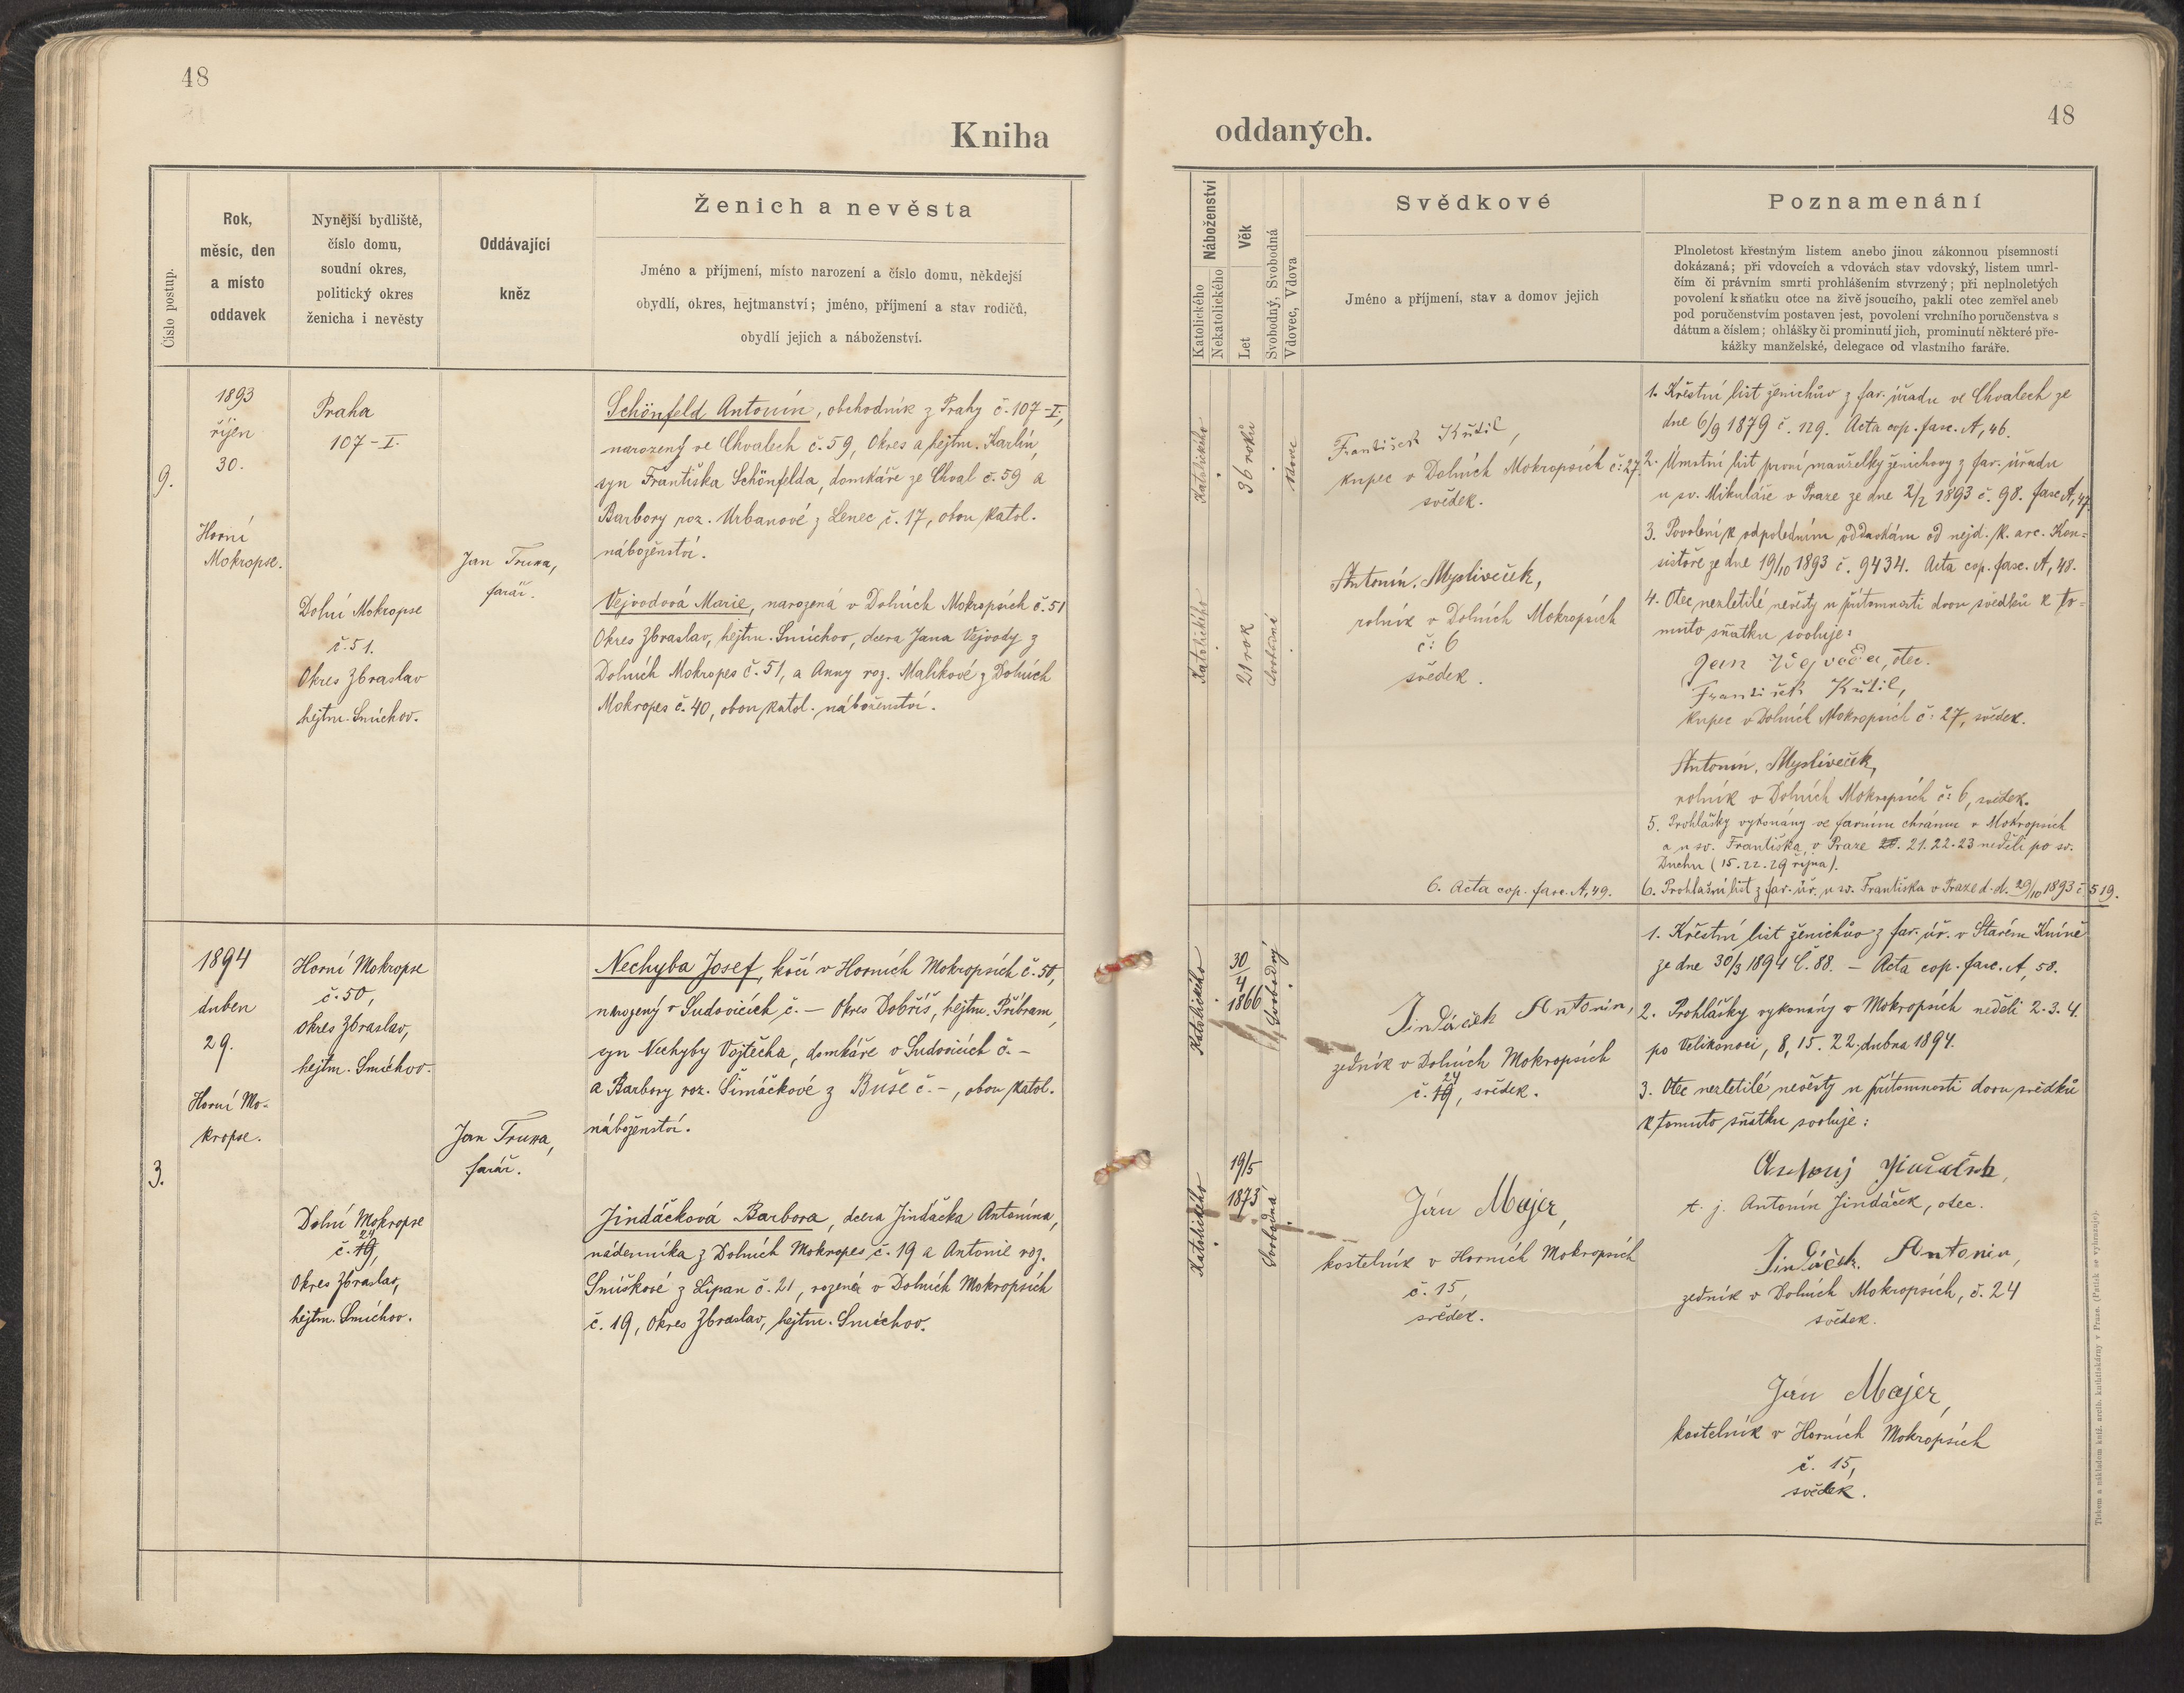 48
Kniha
Číslo postup.
Rok,
měsíc, den
a místo
oddavek
Nynější bydliště,
číslo domu,
soudní okres,
politický okres
ženicha i nevěsty
Oddávající
kněz
Ženich a nevěsta
Jméno a příjmení, místo narození a číslo domu, někdejší
obydlí, okres, hejtmanství; jméno, příjmení a stav rodičů,
obydlí jejich a náboženství.
9.
1893
říjen
30.
Horní
Mokropse.
Praha
107-I.
Dolní Mokropse
č. 51.
Okres Zbraslav
hejtm. Smíchov.
Jan Truxa,
farář.
Schönfeld Antonín, obchodník z Prahy č. 107-I.,
narozený ve Chvalech č. 59, Okres a hejtm. Karlín,
syn Františka Schönfelda, domkáře ze Chval č. 59 a
Barbory roz. Urbanové z Lenec č. 17, obou katol.
náboženství.
Vejvodová Marie, narozená v Dolních Mokropsích č. 51
Okres Zbraslav, hejtm. Smíchov, dcera Jana Vejvody z
Dolních Mokropes č. 51, a Anny roz. Malíkové z Dolních
Mokropes č. 40, obou katol. náboženství.
3.
1894
duben
29.
Horní Mo-
kropse.
Horní Mokropse
č. 50,
okres Zbraslav,
hejtm. Smíchov.
Dolní Mokropse
24
č. 19,
Okres Zbraslav,
hejtm. Smíchov.
Jan Truxa,
farář.
Nechyba Josef, kočí v Horních Mokropsích č. 50,
narozený v Sudovicích č. — Okres Dobříš, hejtm. Příbram,
syn Nechyby Vojtěcha, domkáře v Sudovicích č. —
a Barbory roz. Šimáčkové z Buše č. —, obou katol.
náboženství.
Jindáčková Barbora, dcera Jindáčka Antonína,
nádenníka z Dolních Mokropes č. 19 a Antonie roz.
z Lipan č. 21, rozená v Dolních Mokropsích
č. 19, Okres Zbraslav, hejtm. Smíchov.
48
oddaných.
Náboženství
Katolického
Nekatolického
Věk
Let
Svobodný, Svobodná
Vdovec, Vdova
Svědkové
Jméno a příjmení, stav a domov jejich
Poznamenání
Plnoletost křestným listem anebo jinou zákonnou písemností
dokázaná; při vdovcích a vdovách stav vdovský, listem úmrl-
čím či právním smrti prohlášením stvrzený; při neplnoletých
povolení k sňatku otce na živě jsoucího, pakli otec zemřel aneb
pod poručenstvím postaven jest, povolení vrchního poručenstva s
dátum a číslem; ohlášky či prominutí jich, prominutí některé pře-
kážky manželské, delegace od vlastního faráře.
Katolického
36 roků
vdovec
Katolického
21 rok
svobodná
František Kutil,
kupec v Dolních Mokropsích č: 27.
svědek.
Antonín Mysliveček,
rolník v Dolních Mokropsích
č: 6
svědek.
6. Acta cop. fasc. A, 49.
1. Křestní list ženichův z far. úřadu ve Chvalech ze
dne 6/9 1879 č. 129. Acta cop. fasc. A, 46.
2. Úmrtní list první manželky ženichovy z far. úřadu
u sv. Mikuláše v Praze ze dne 2/2 1893 č. 98. fasc. A, 47.
3. Povolení k odpoledním oddavkám od nejd. k. arc. Kon-
sistoře ze dne 19/10 1893 č. 9434. Acta cop. fasc. A, 48.
4. Otec nezletilé nevěsty u přítomnosti dvou svědků k to-
muto sňatku svoluje:
Jan Wejvoda, otec.
František Kutil,
kupec v Dolních Mokropsích č: 27, svědek.
Antonín Mysliveček,
rolník v Dolních Mokropsích č: 6, svědek.
5. Prohlášky vykonány ve farním chrámu v Mokropsích
a u sv. Františka v Praze 21. 22. 23 neděli po sv.
Duchu (15. 22. 29 října).
6. Prohlašní list z far. úř. u sv. Františka v Praze d. d. 29/10 1893 č. 519.
Katolického
30
4
1866
Svobodný
Katolického
19/5
1873
Svobodná
Jindáček Antonín,
zedník v Dolních Mokropsích
24
č. 19, svědek.
Jan Majer,
kostelník v Horních Mokropsích
č. 15,
svědek.
1. Křestní list ženichův z far. úř. v Starém Kníně
ze dne 30/3 1894 č. 88. — Acta cop. fasc. A, 58.
2. Prohlášky vykonány v Mokropsích neděli 2. 3. 4.
po Velikonoci, 8, 15. 22. dubna 1894.
3. Otec nezletilé nevěsty u přítomnosti dvou svědků
k tomuto sňatku svoluje:
t. j. Antonín Jindáček, otec.
Jindáček Antonin,
zedník v Dolních Mokropsích, č. 24
svědek.
Jan Majer,
kostelník v Horních Mokropsích
č. 15,
svědek.